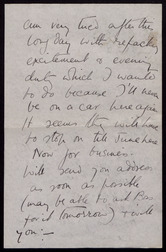 am very tired after the
long day with repacking
excitement & evening
duty which I wanted
to do because I'll never
be on a car here again
It seems they with here
to stop on till June here
Now for business
Will send you address
as soon as possible
(may be able to ask Pas
for it tomorrow) & wille
you :—